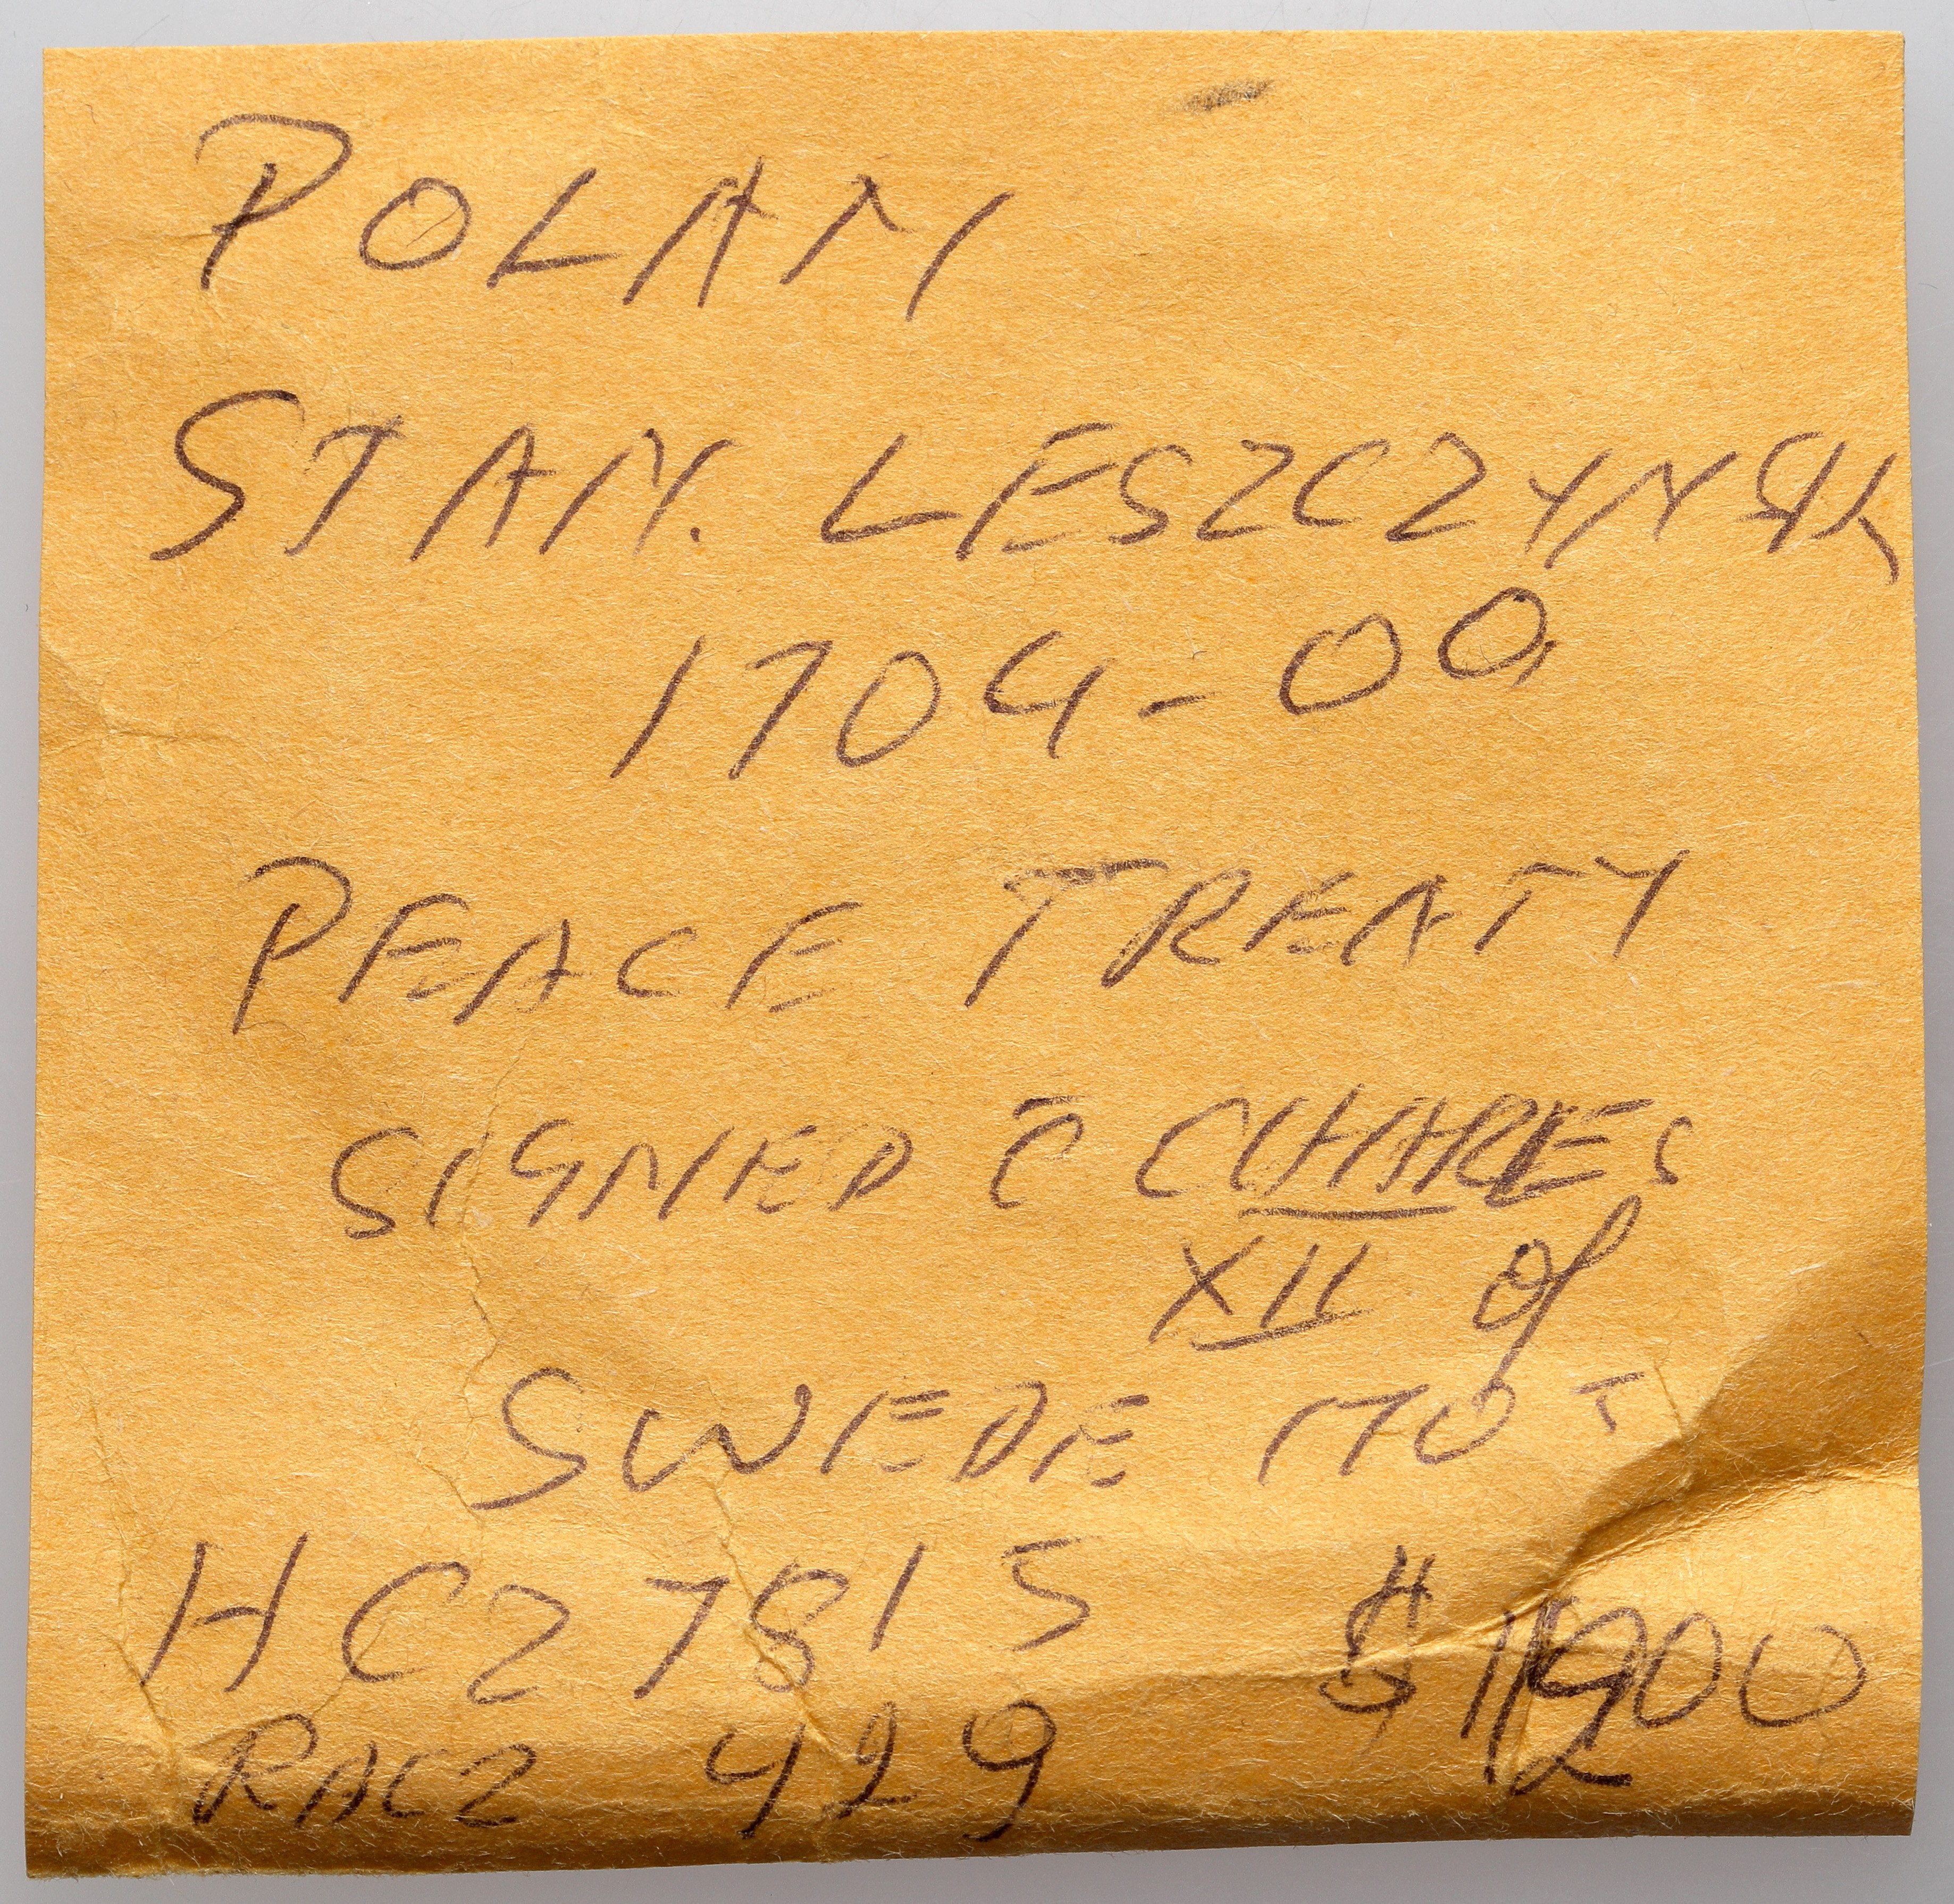 POLAN
STAN. LESZCZYNSK
1704-09
PEACE TREATY
SIGNED c̄ CHARES
XII of
SWEDE 1705
HCZ 7815
RACZ 429